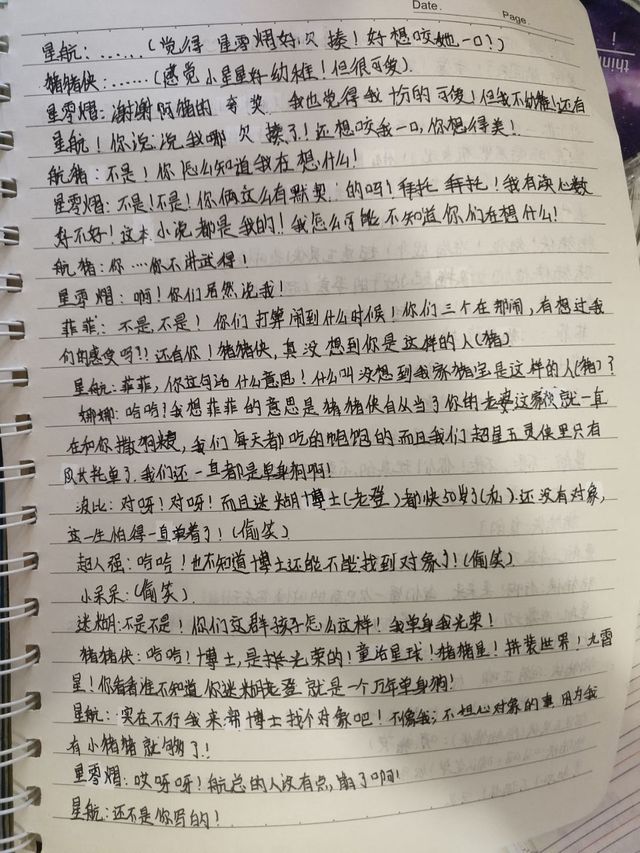 Date.
Page.
星航：……（觉得 星零熠好欠揍！好想咬她一口？）
猪猪侠：……（感觉小星星好幼稚！但很可爱）
星零熠：谢谢阿猪的夸奖 我也觉得我十份的可爱！但我不幼稚！还有
星航！你说说我哪欠揍了！还想咬我一口，你想得美！
航猪：不是！你怎么知道我在想什么！
星零熠：不是！不是！你俩这么有默契的吗！拜托 拜托！我有读心数
好不好！这本小说都是我的！我怎么可能不知道你们在想什么！
航猪：你……你不讲武得！
星零熠：啊！你们居然说我！
菲菲：不是，不是！你们打算闹到什么时候！你们三个在那闹，有想过我
们的感受吗？！还有你！猪猪侠，真没想到你是这样的人（猪）
星航：菲菲，你这句话什么意思！什么叫没想到我家猪宝是这样的人（猪）？
娜娜：哈哈！我想菲菲的意思是猪猪侠自从当了你的老婆这家伙就一直
在和你撒狗粮，我们每天都吃的饱饱的而且我们超星五灵侠里只有
风大托单了，我们还一直都是单身狗啊！
波比：对呀！对呀！而且迷糊博士（老登）都快50岁了（私）还没有对象，
这一生怕得一直单着了！（偷笑）
超人强：哈哈！也不知道博士还能不能找到对象了！（偷笑）
小呆呆：（偷笑）
迷糊：不是不是！你们这群孩子怎么这样！我单身我光荣！
猪猪侠：哈哈！博士，是挺光荣的！童话星球！猪猪星！拼装世界！九霄
星！你看看谁不知道你迷糊老登就是一个万年单身狗！
星航：实在不行我来帮博士找个对象吧！不像我，不担心对象的事因为我
有小猪猪就够了！
星零熠：哎呀呀！航总的人没有点，崩了啊！
星航：还不是你写的！
thin